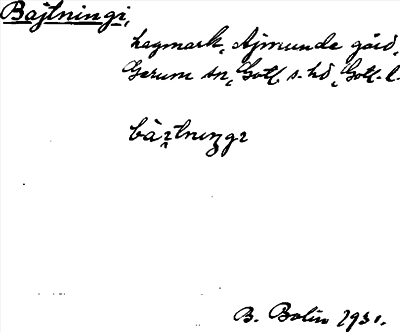 Bajtningi,
hagmark, Ajmunde gård,
Gerum sn, Gotl s. hd, Gotl. l.
bàɪtnɪŋgɪ
B. Bolin 1931.